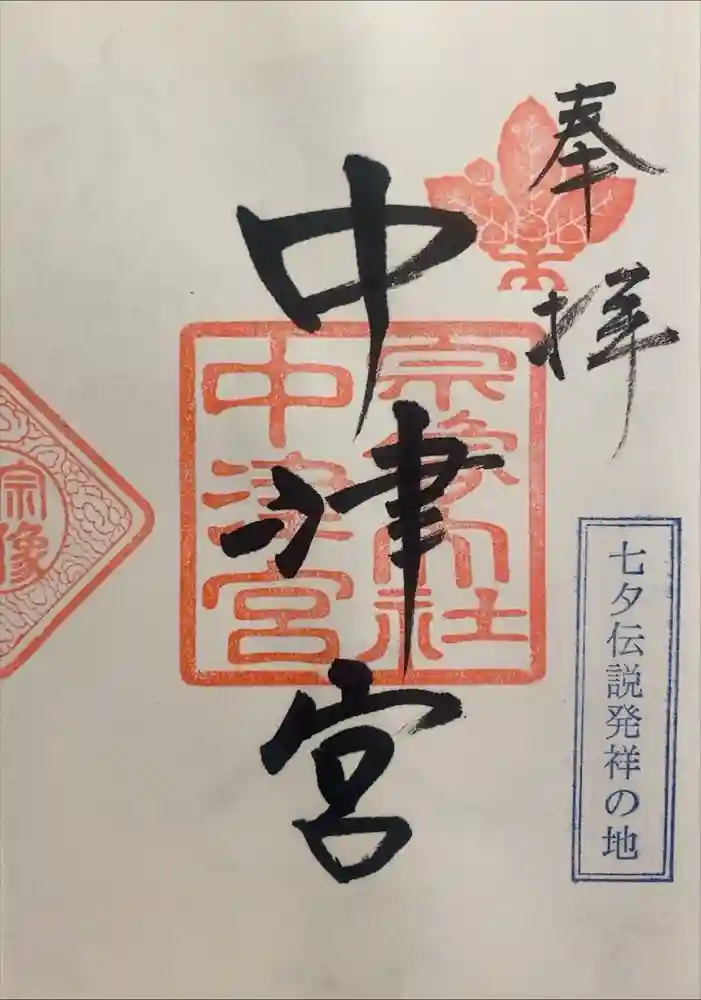 奉拝
宗像大社
中津宮
中津宮
七夕伝説発祥の地
宗像